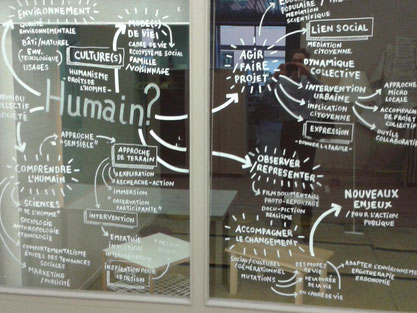 ENVIRONNEMENT
QUALITÉ
ENVIRONNEMENTALE
BÂTI/NATUREL
ENV.
TECHNOLOGIQUE
USAGES
CULTURE(S)
HUMANISME
DROITS DE
L'HOMME
MODE(S)
DE VIE
CADRE DE VIE
ÉCOSYSTÈME SOCIAL
FAMILLE
VOISINAGE
Humain?
COLLECTIF
APPROCHE
"SENSIBLE"
APPROCHE
DE TERRAIN
EXPLORATION
RECHERCHE-ACTION
IMMERSION
OBSERVATION
PARTICIPANTE
COMPRENDRE
L'HUMAIN
SCIENCES
DE L'HOMME
SOCIOLOGIE
ANTHROPOLOGIE
ETHNOLOGIE
COMPORTEMENTALISME
ÉTUDES DES TENDANCES
SOCIALES
MARKETING
/PUBLICITÉ
INTERVENTION
EMPATHIE
INTUITION
INSPIRATION POUR
LE DESIGN
MÉDIATION
SCIENTIFIQUE
LIEN SOCIAL
MÉDIATION
CITOYENNE
AGIR
FAIRE
PROJET
DYNAMIQUE
COLLECTIVE
INTERVENTION
URBAINE
IMPLICATION
CITOYENNE
ACTION
MICRO
LOCALE
ACCOMPAGNEMENT
DE PROJET
COLLECTIF
OUTILS
COLLABORATIFS
EXPRESSION
DONNER LA PAROLE
OBSERVER
REPRÉSENTER
FILM DOCUMENTAIRE
PHOTO-REPORTAGE
DOCU-FICTION
RÉALISME
NOUVEAUX
ENJEUX
POUR L'ACTION
PUBLIQUE
ACCOMPAGNER
LE CHANGEMENT
SOCIAL/CULTUREL
GÉNÉRATIONNEL
MUTATIONS
DES MODES
DE VIE
DE LA DURÉE
DE LA VIE
DU CADRE DE VIE
ADAPTER L'ENVIRONNEMENT
ERGOTHÉRAPIE
ERGONOMIE